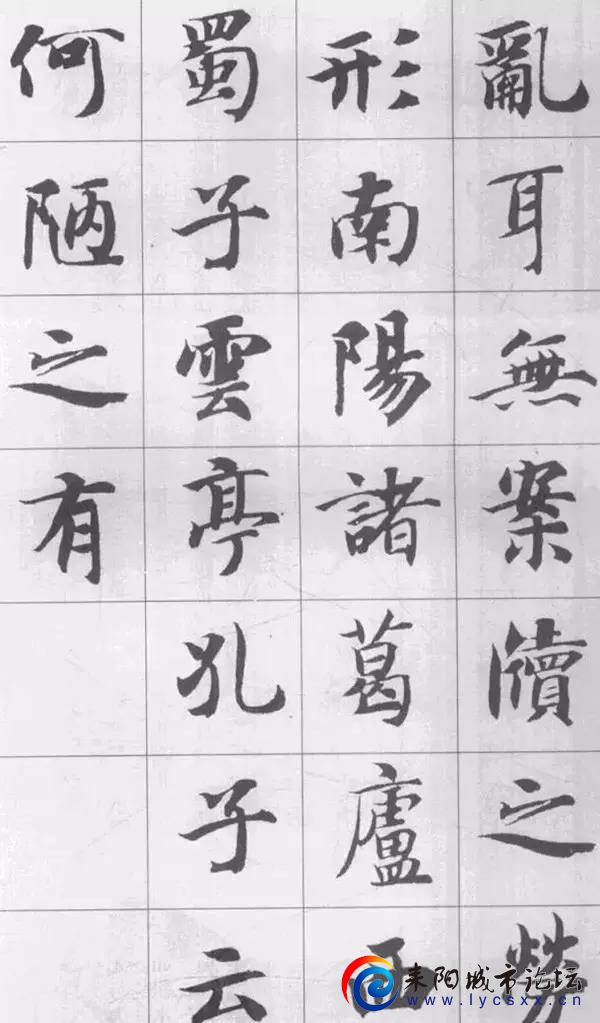 亂耳無案牘之勞
形南陽諸葛廬西
蜀子雲亭孔子云
何陋之有
耒阳城市论坛
www.lycsxx.cn